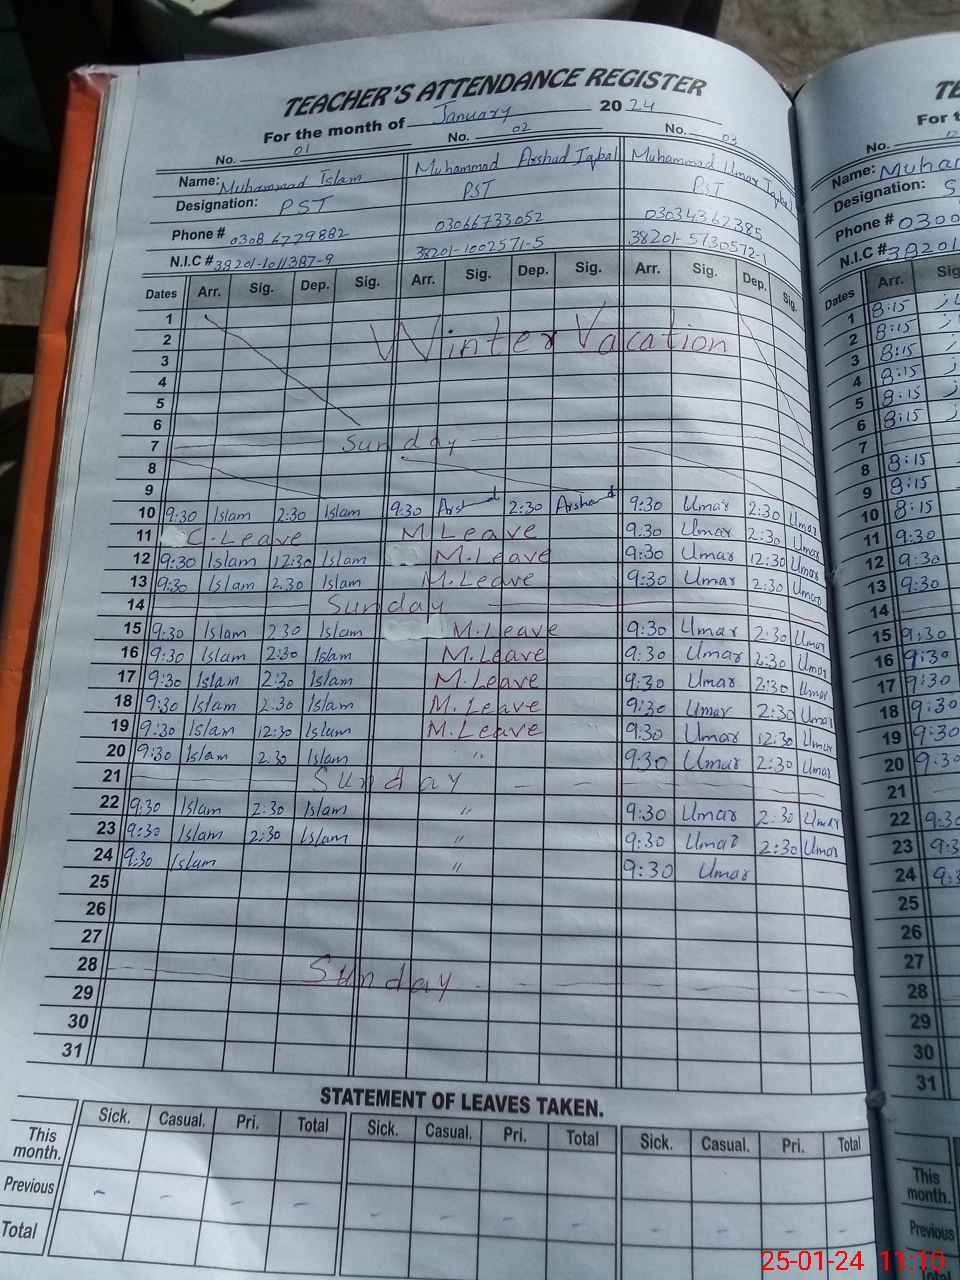 TEACHER'S ATTENDANCE REGISTER
For the month of January 2024
No. 01 No. 02 No. 03
Name: Muhammad Islam Muhammad Arshad Iqbal Muhammad Umar Iqbal
Designation: PST PST PST
Phone # 0308 6779882 03066733052 03034362385
N.I.C # 38201-1011387-9 38201-1002571-5 38201-5730572-1
Dates Arr. Sig. Dep. Sig. Arr. Sig. Dep. Sig. Arr. Sig. Dep. Sig.
1
2 Winter Vacation
3
4
5
6
7 Sunday
8
9
10 9:30 Islam 2:30 Islam 9:30 Arshad 2:30 Arshad 9:30 Umar 2:30 Umar
11 C.Leave M.Leave 9:30 Umar 2:30 Umar
12 9:30 Islam 12:30 Islam M.Leave 9:30 Umar 12:30 Umar
13 9:30 Islam 2.30 Islam M.Leave 9:30 Umar 2:30 Umar
14 Sunday
15 9:30 Islam 2:30 Islam M.Leave 9:30 Umar 2:30 Umar
16 9:30 Islam 2:30 Islam M.Leave 9:30 Umar 2:30 Umar
17 9:30 Islam 2:30 Islam M.Leave 9:30 Umar 2:30 Umar
18 9:30 Islam 2.30 Islam M.Leave 9:30 Umar 2:30 Umar
19 9:30 Islam 12:30 Islam M.Leave 9:30 Umar 12:30 Umar
20 9:30 Islam 2.30 Islam " 9:30 Umar 2:30 Umar
21 Sunday
22 9:30 Islam 2:30 Islam " 9:30 Umar 2:30 Umar
23 9:30 Islam 2:30 Islam " 9:30 Umar 2:30 Umar
24 9:30 Islam " 9:30 Umar
25
26
27
28 Sunday
29
30
31
STATEMENT OF LEAVES TAKEN.
Sick. Casual. Pri. Total Sick. Casual. Pri. Total Sick. Casual. Pri. Total
This month.
Previous - - - - - - - - - - - -
Total
For t
No.
Name: Muham
Designation: S
Phone # 0300
N.I.C # 38201
Dates Arr. Sig
1 8:15
2 8:15
3 8:15
4 8:15
5 8:15
6 8:15
7
8 8:15
9 8:15
10 8:15
11 9:30
12 9:30
13 9:30
14
15 9:30
16 9:30
17 9:30
18 9:30
19 9:30
20 9:30
21
22 9:30
23 9:3
24 9:3
25
26
27
28
29
30
31
This month.
Previous
Total
25-01-24 11:10